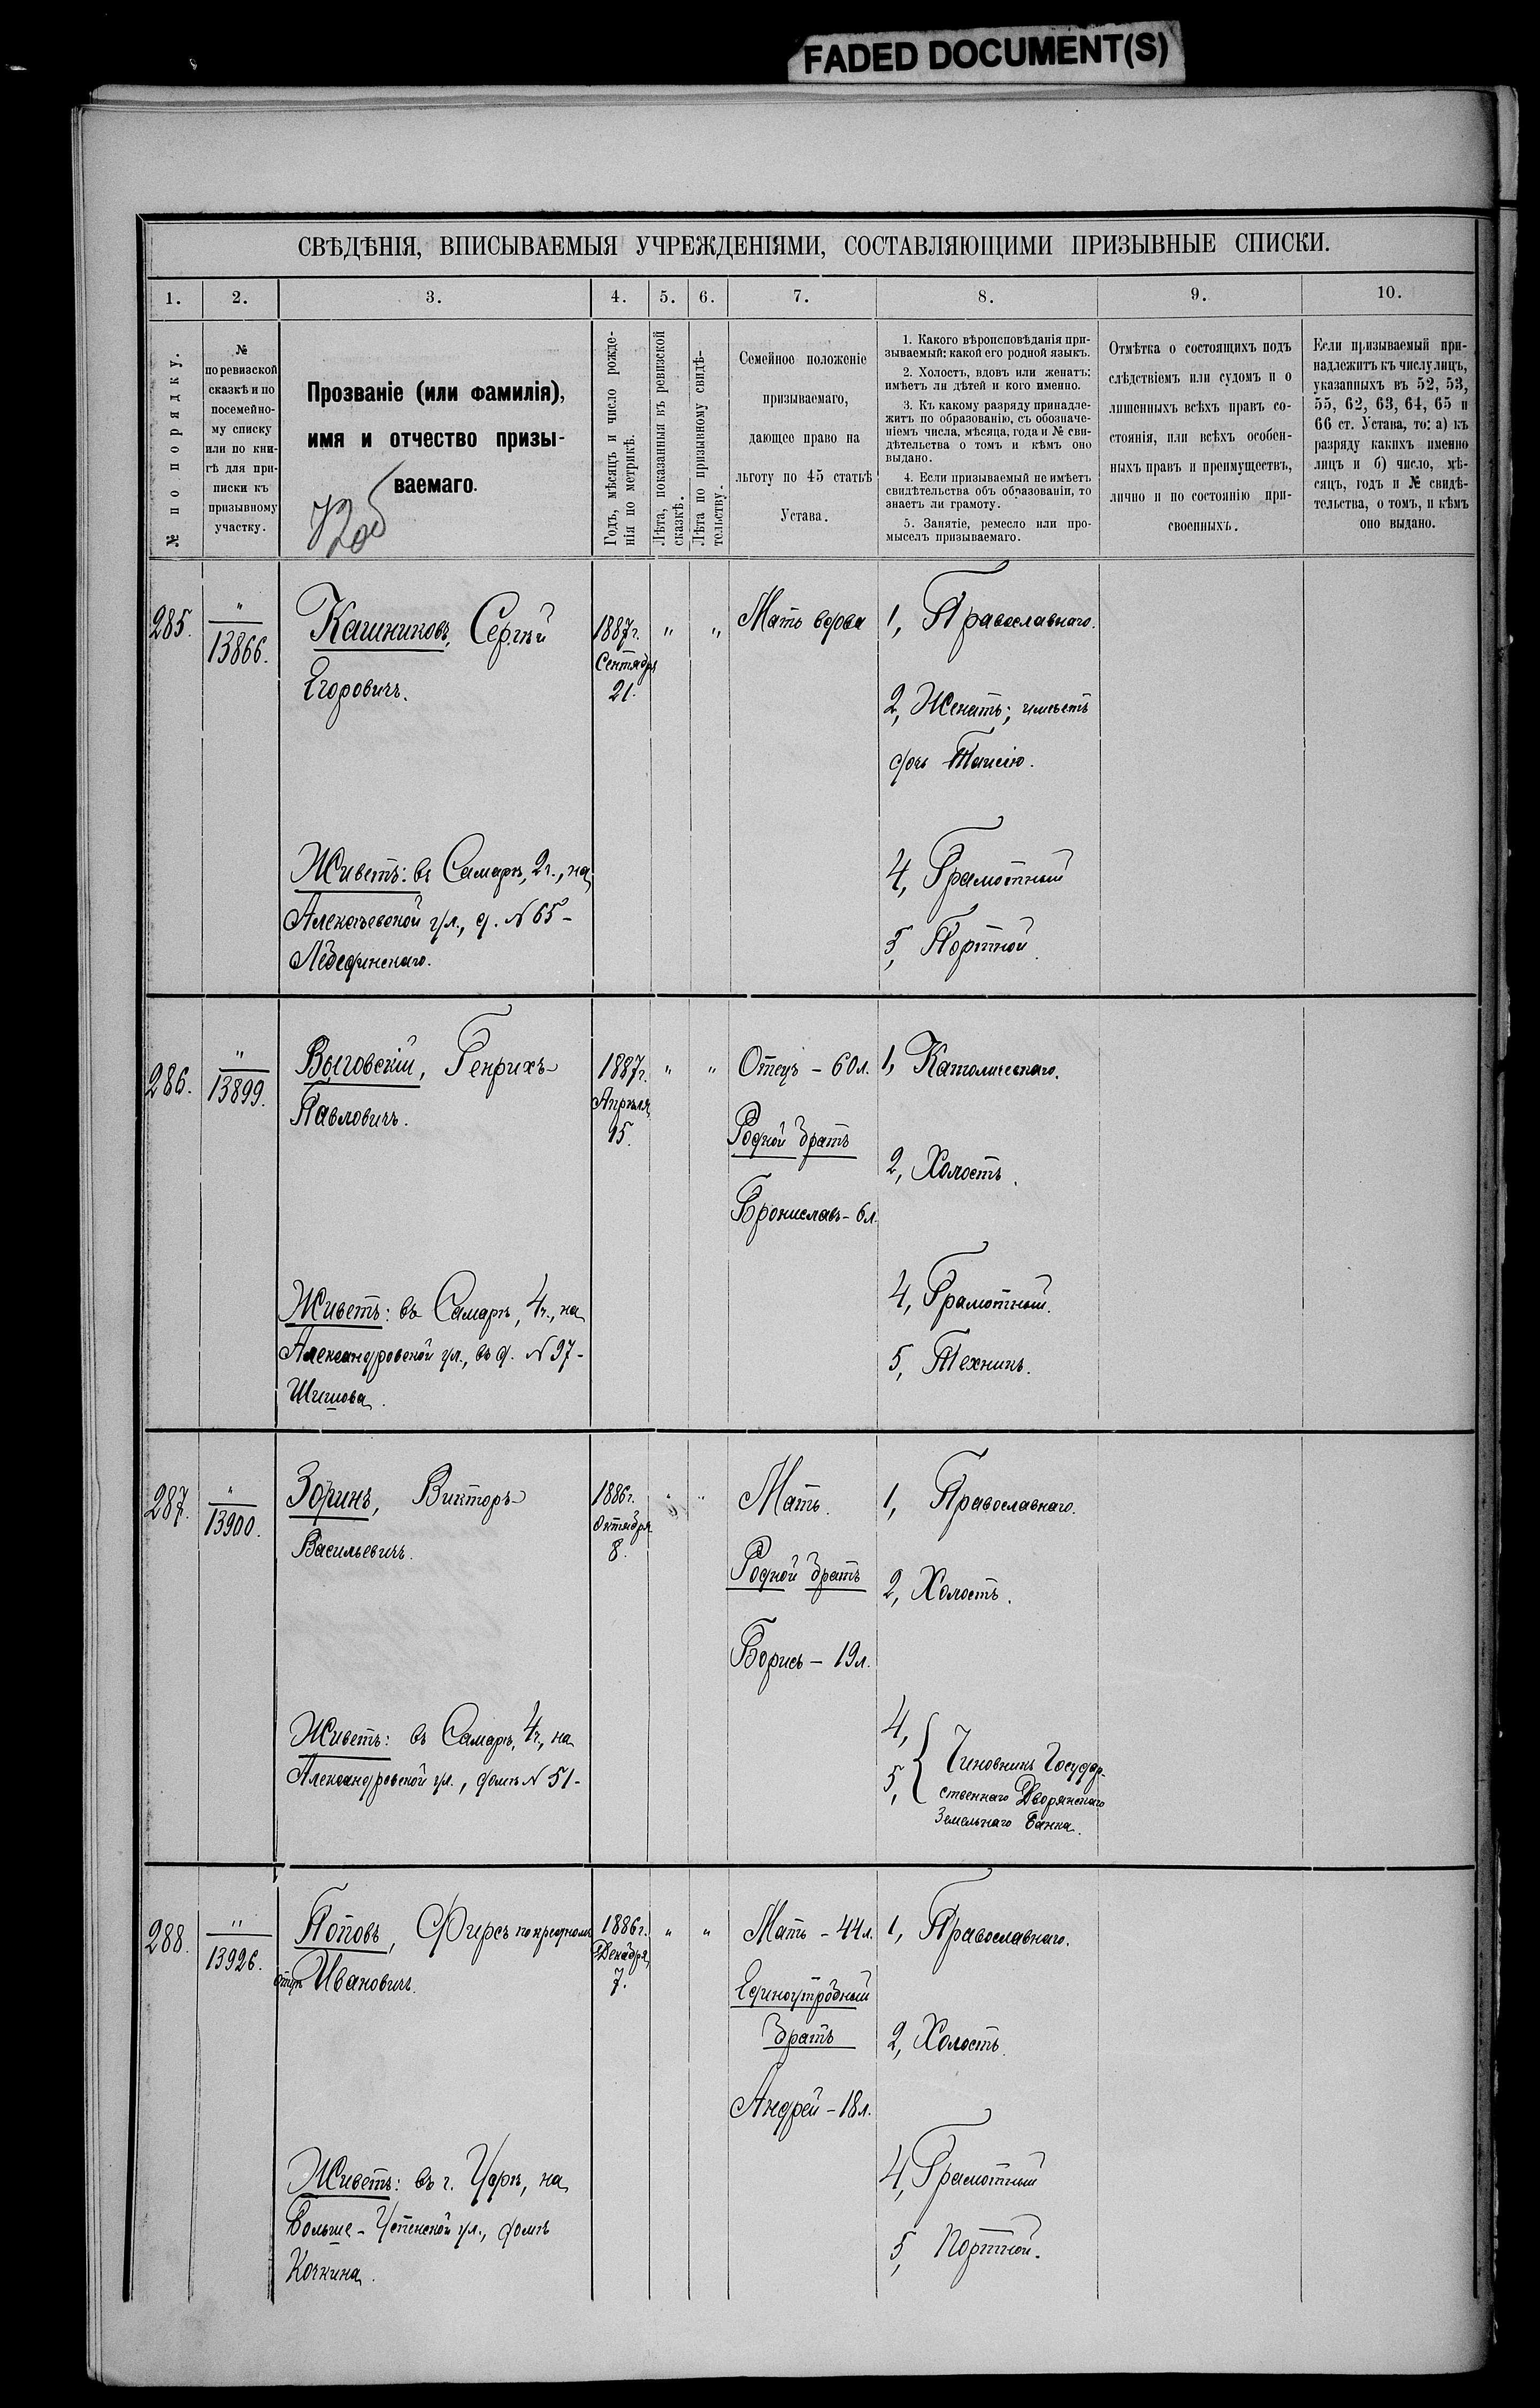 FADED DOCUMENT(S)
СВѢДѢНІЯ, ВПИСЫВАЕМЫЯ УЧРЕЖДЕНІЯМИ, СОСТАВЛЯЮЩИМИ ПРИЗЫВНЫЕ СПИСКИ.
1. 2. 3. 4. 5. 6. 7. 8. 9. 10.
№ по порядку.
№
по ревизской
сказкѣ и по
посемейно-
му списку
или по кни-
гѣ для при-
писки къ
призывному
участку.
Прозваніе (или фамилія),
имя и отчество призы-
ваемаго.
Годъ, мѣсяцъ и число рожде-
нія по метрикѣ.
Лѣта, показанныя въ ревизской
сказкѣ.
Лѣта по призывному свидѣ-
тельству.
Семейное положеніе
призываемаго,
дающее право на
льготу по 45 статьѣ
Устава.
1. Какого вѣроисповѣданія при-
зываемый: какой его родной языкъ.
2. Холостъ, вдовъ или женатъ;
имѣетъ ли дѣтей и кого именно.
3. Къ какому разряду принадле-
житъ по образованію, съ обозначе-
ніемъ числа, мѣсяца, года и № сви-
дѣтельства о томъ и кѣмъ оно
выдано.
4. Если призываемый не имѣетъ
свидѣтельства объ образованіи, то
знаетъ ли грамоту.
5. Занятіе, ремесло или про-
мыселъ призываемаго.
Отмѣтка о состоящихъ подъ
слѣдствіемъ или судомъ и о
лишенныхъ всѣхъ правъ со-
стоянія, или всѣхъ особен-
ныхъ правъ и преимуществъ,
лично и по состоянію при-
своенныхъ.
Если призываемый при-
надлежитъ къ числу лицъ,
указанныхъ въ 52, 53,
55, 62, 63, 64, 65 и
66 ст. Устава, то: а) къ
разряду какихъ именно
лицъ и б) число, мѣ-
сяцъ, годъ и № свидѣ-
тельства, о томъ, и кѣмъ
оно выдано.
285.
"
13866.
Кашниковъ, Сергѣй
Егоровичъ.
Живетъ: въ Самарѣ, 2ч., на
Алексѣевской ул., д. N 65-
Лебединскаго.
1887г.
Сентября
21.
" "
Мать вдова
1, Православнаго.
2, Женатъ; имѣетъ
дочь Таисію.
4, Грамотный
5, Портной.
286.
"
13899.
Выговскій, Генрихъ
Павловичъ.
Живетъ: въ Самарѣ, 4ч., на
Александровской ул., въ д. N 97-
Шишова.
1887г.
Апрѣля
15.
" "
Отецъ - 60л.
Родной братъ
Брониславъ - 6л.
1, Католическаго.
2, Холостъ.
4, Грамотный.
5, Техникъ.
287.
"
13900.
Зоринъ, Викторъ
Васильевичъ.
Живетъ: въ Самарѣ, 4ч., на
Александровской ул., домъ N 51-
1886г.
Октября
8.
" "
Мать.
Родной братъ
Борисъ - 19л.
1, Православнаго.
2, Холостъ.
4,
5, { Чиновникъ Государ-
ственнаго Дворянскаго
Земельнаго банка.
288.
"
13926.
Поповъ, Фирсъ по крестному
отцу Ивановичъ.
Живетъ: въ г. Уфѣ, на
Больше-Успенской ул., домъ
Кочкина.
1886г.
Декабря
7.
" "
Мать - 44л.
Единоутробный
братъ
Андрей - 18л.
1, Православнаго.
2, Холостъ.
4, Грамотный
5, Портной.